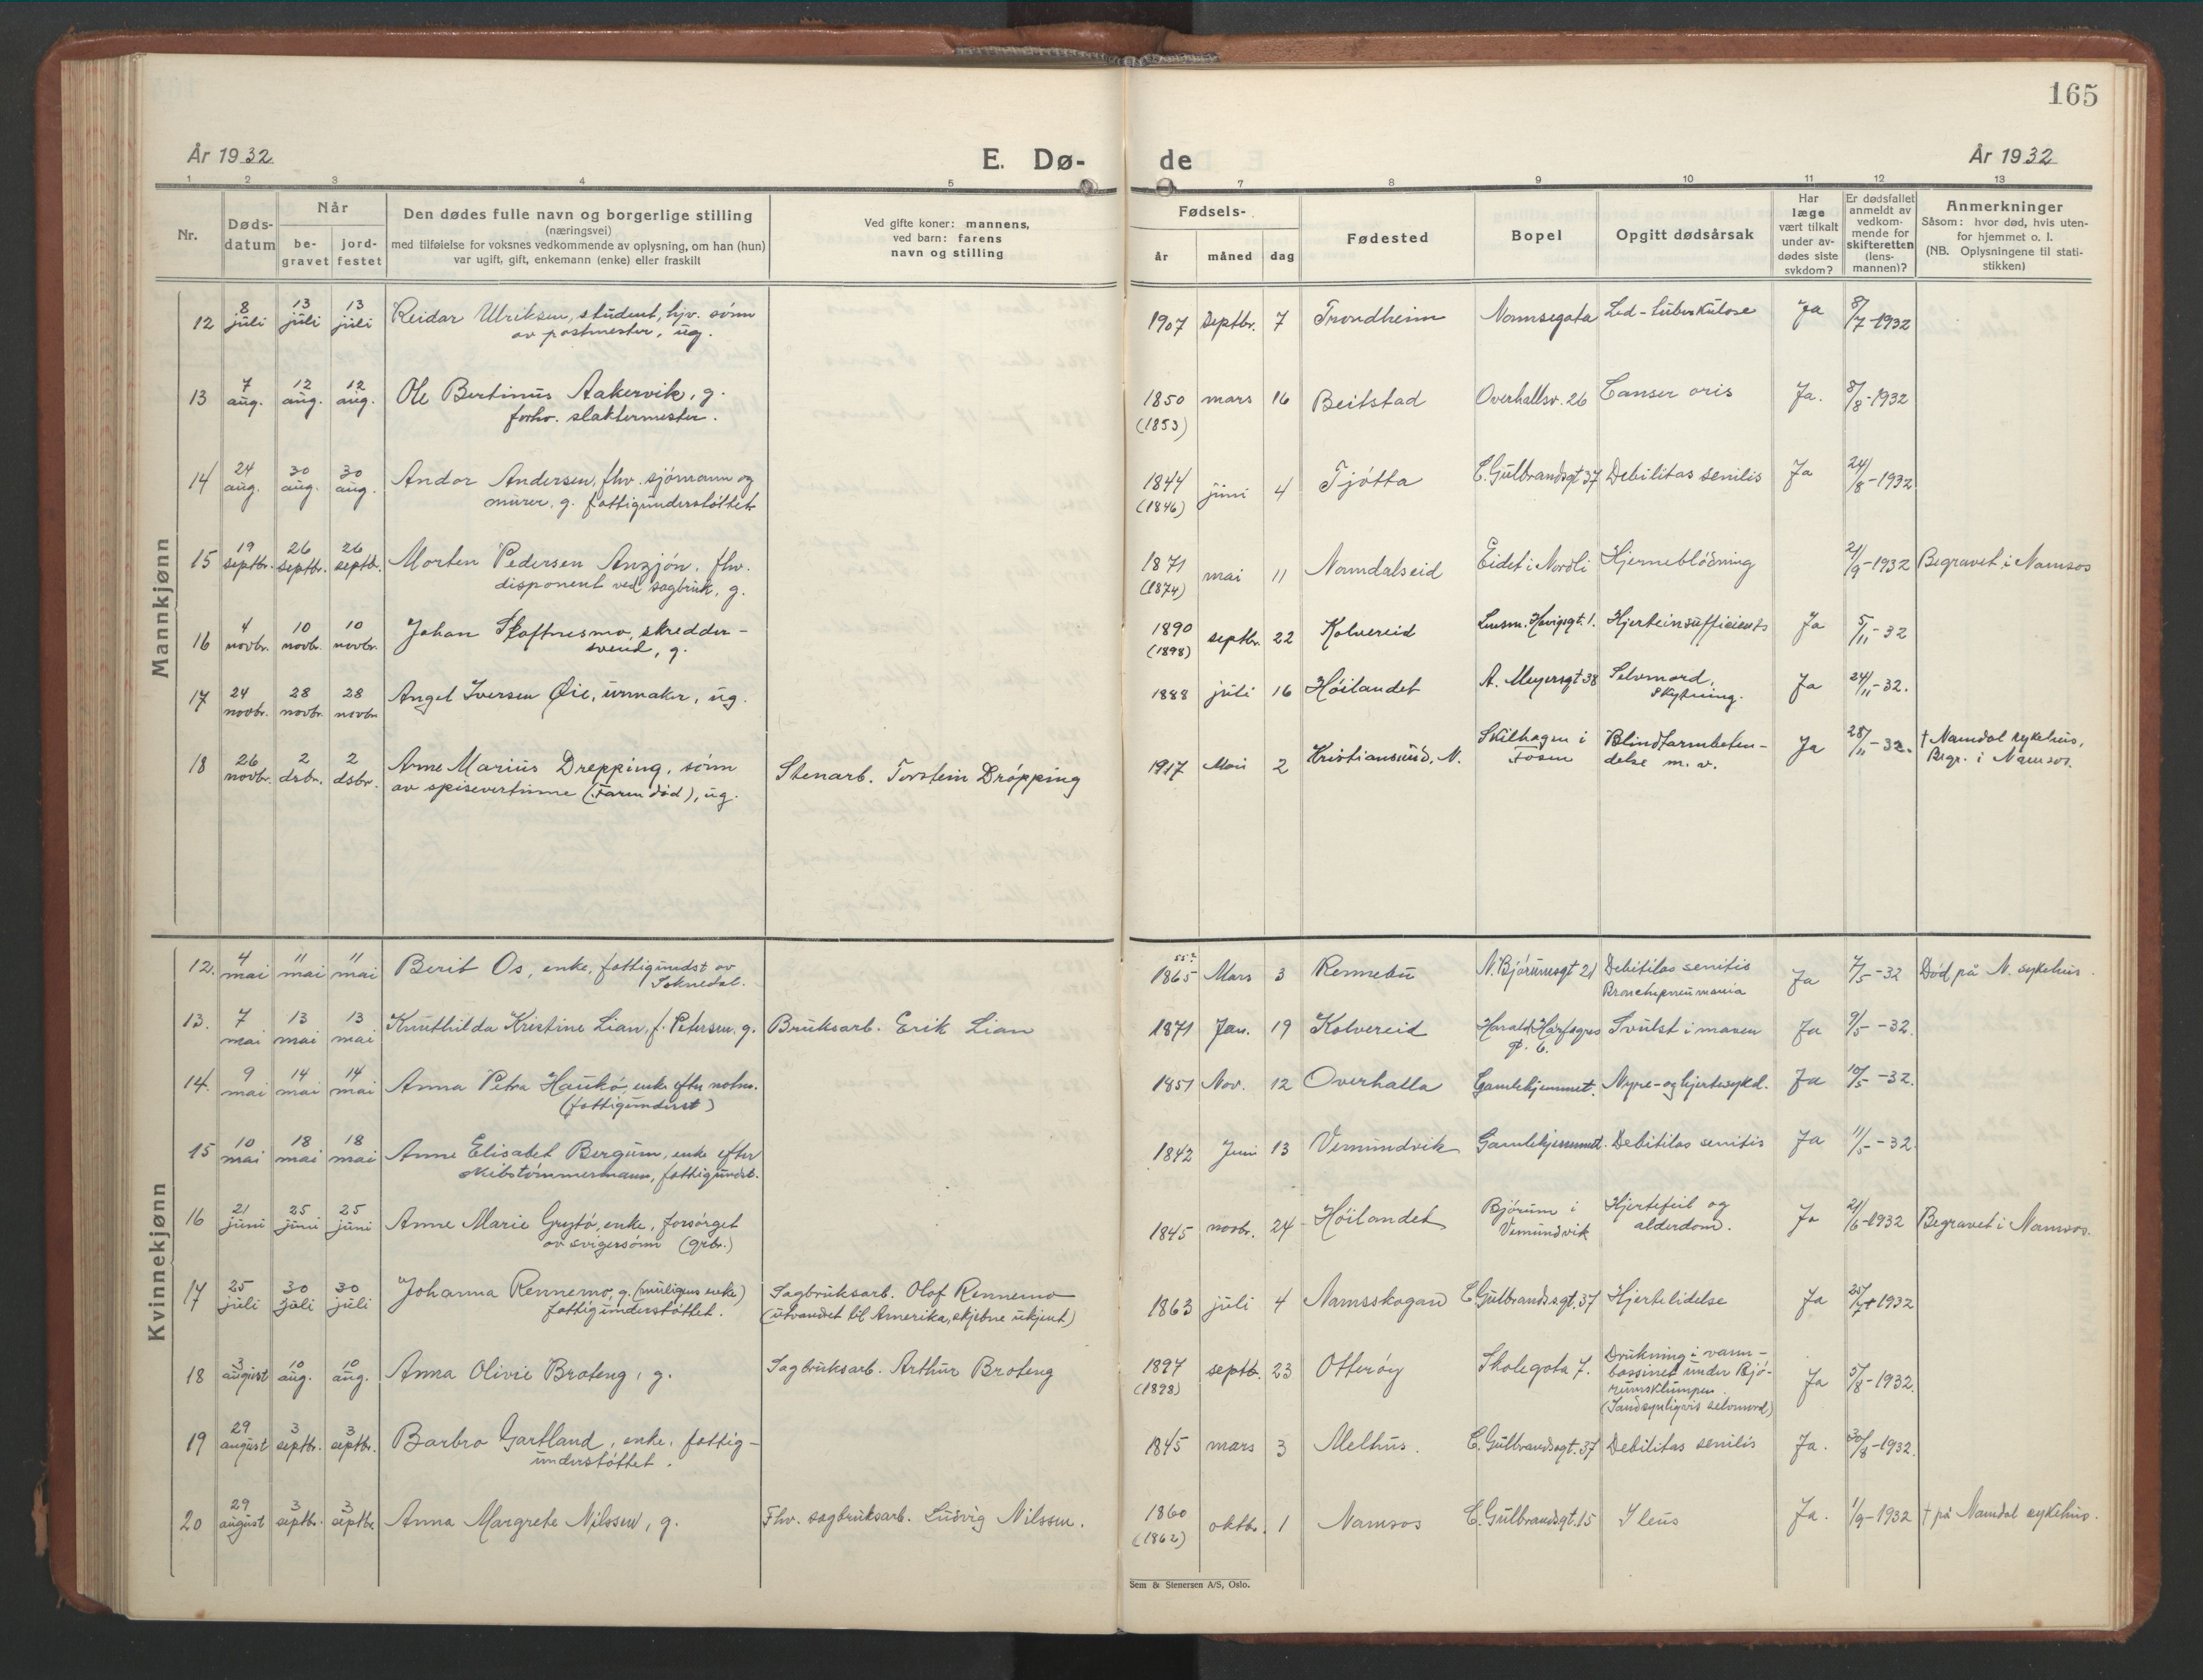 165
År 1932
E. Dø-
de
År 1932
1 2 3 4 5
7 8 9 10 11 12 13
Nr.
Døds-
datum
Når
be-
gravet
jord-
festet
Den dødes fulle navn og borgerlige stilling
(næringsvei)
med tilføielse for voksnes vedkommende av oplysning, om han (hun)
var ugift, gift, enkemann (enke) eller fraskilt
Ved gifte koner: mannens,
ved barn: farens
navn og stilling
Fødsels-
år
måned
dag
Fødested
Bopel
Opgitt dødsårsak
Har
læge
vært tilkalt
under av-
dødes siste
sykdom?
Er dødsfallet
anmeldt av
vedkom-
mende for
skifteretten
(lens-
mannen)?
Anmerkninger
Såsom: hvor død, hvis uten-
for hjemmet o. l.
(NB. Oplysningene til stati-
stikken)
Mannkjønn
12 8 juli 13 juli 13 juli Reidar Ulriksen, student, hjv. sönn
av postmester, ug.
1907 Septbr. 7 Trondheim Namsegata Led-tuberkulose Ja 8/7-1932
13 7 aug. 12 aug. 12 aug. Ole Bertinus Aakervik, g.
forhv. slaktermester.
1850 mars 16 Beitstad Overhallsv. 26 Canser oris Ja. 8/8-1932
(1853)
14 24 aug. 30 aug. 30 aug. Andor Andersen, fhv. sjömann og
murer, g. fattigunderstöttet
1844 juni 4 Tjötta C. Gulbrandsgt 37 Debilitas senilis Ja 24/8-1932
(1846)
15 19 septbr. 26 septbr. 26 septb. Morten Pedersen Anzjön, fhv.
disponent ved sagbruk, g.
1871 mai 11 Namdalseid Eidet i Nordli Hjerneblödning 21/9-1932 Begravet i Namsos
(1874)
16 4 novbr. 10 novbr. 10 novbr. Johan Skaftnesmo, skredder-
svend, g.
1890 septbr. 22 Kolvereid Lensm. Havigsgt. 1. Hjerteinsufficients Ja 5/11-32
(1898)
17 24 novbr. 28 novbr. 28 novbr Angel Iversen Øie, urmaker, ug.
1888 juli 16 Höilandet A. Meyersgt 38 Selvmord,
Skytning. Ja 24/11-32.
18 26 novbr. 2 dsbr. 2 dsbr. Arne Marius Drepping, sönn
av spisevertinne (Faren död), ug.
Stenarb. Torstein Dröpping
1917 Mai 2 Kristiansund, N. Skilhagen i
Fosen Blindtarmbeten-
delse m. v. Ja 28/11-32. † Namdal sykehus,
Begr. i Namsos.
Kvinnekjønn
12. 4 mai 11 mai 11 mai Berit Os, enke, fattigundst av
Soknedal.
55?
1865 Mars 3 Rennebu N. Björumsgt 21 Debilitas senilis
Bronchipneumania Ja 7/5-32 Död på N. sykehus.
13. 7 mai 13 mai 13 mai Knuthilda Kristine Lian, f. Petersen, g. Bruksarb. Erik Lian
1871 Jan. 19 Kolvereid Harald Harfagres
gt. 6. Svulst i maven Ja 9/5-32.
14. 9 mai 14 mai 14 mai Anna Petra Haukö, enke efter notm.
(fattigunderst)
1851 Nov. 12 Overhalla Gamlehjemmet. Nyre- og hjertesykd. Ja 10/5-32.
15 10 mai 18 mai 18 mai Anne Elisabet Bergum, enke efter
skibstömmermann, fattigundst.
1842 Juni 13 Vemundvik Gamlehjemmet. Debilitas senilis Ja 11/5-32
16 21 juni 25 juni 25 juni Anne Marie Grytö, enke, forsörget
av svigersönn (grbr.)
1845 novbr. 24 Höilandet Björum i
Vemundvik Hjertefeil og
alderdom. Ja 21/6-1932 Begravet i Namsos.
17 25 juli 30 juli 30 juli Johanna Rennemo, g. (muligens enke)
fattigunderstöttet.
Sagbruksarb. Olof Rennemo
(utvandret til Amerika, skjebne ukjent)
1863 juli 4 Namsskogan C. Gulbrandsgt. 37 Hjertelidelse Ja 25/7 1932
18 3 august 10 aug. 10 aug. Anna Olivie Broteng, g. Sagbruksarb. Arthur Broteng
1897 septb. 23 Otteröy Skolegata 7. Drukning i vann-
bassinet under Bjö-
rumsklumpen.
(Sandsynligvis selvmord) Ja 3/8-1932.
(1898)
19 29 august 3 septbr. 3 septbr. Barbro Gartland, enke, fattig-
understöttet.
1845 mars 3 Melhus. C. Gulbrandsgt. 37 Debilitas senilis Ja. 30/8-1932.
20 29 august 3 septbr. 3 septbr. Anna Margrete Nilssen, g. Fhv. sagbruksarb. Ludvig Nilssen.
1860 oktbr. 1 Namsos C. Gulbrandsgt. 15 Ileus Ja. 1/9-1932 † på Namdal sykehus.
(1862)
Sem & Stenersen A/S, Oslo.